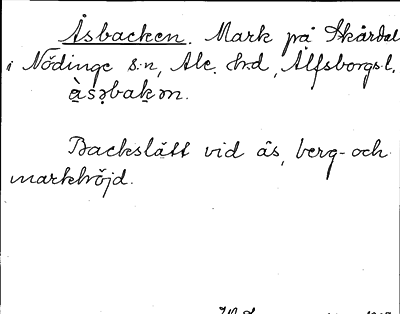 Åsbacken. Mark på Skårdal
i Nödinge s:n, Ale hrd, Älfsborgs l.
à̱sə̣baḵən.
Backslått vid ås, berg- och
markhöjd.